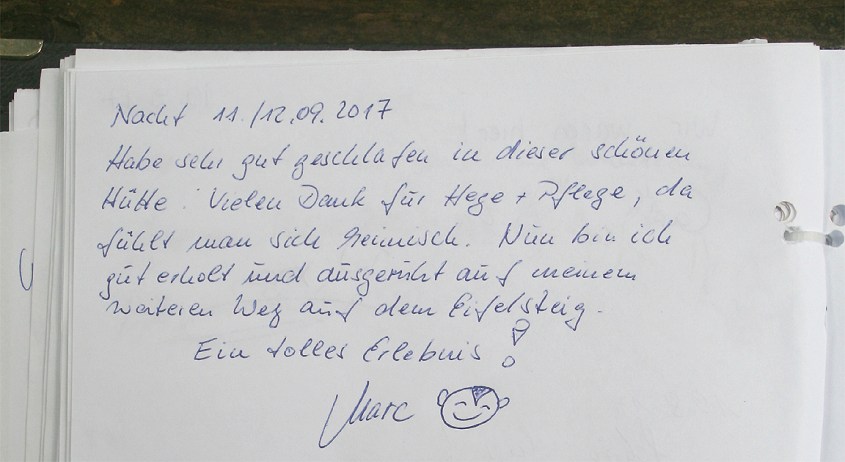 Nacht 11./12.09.2017
Habe sehr gut geschlafen in dieser schönen
Hütte. Vielen Dank für Hege + Pflege, da
fühlt man sich heimisch. Nun bin ich
gut erholt und ausgeruht auf meinem
weiteren Weg auf dem Eifelsteig.
Ein tolles Erlebnis!
Marc